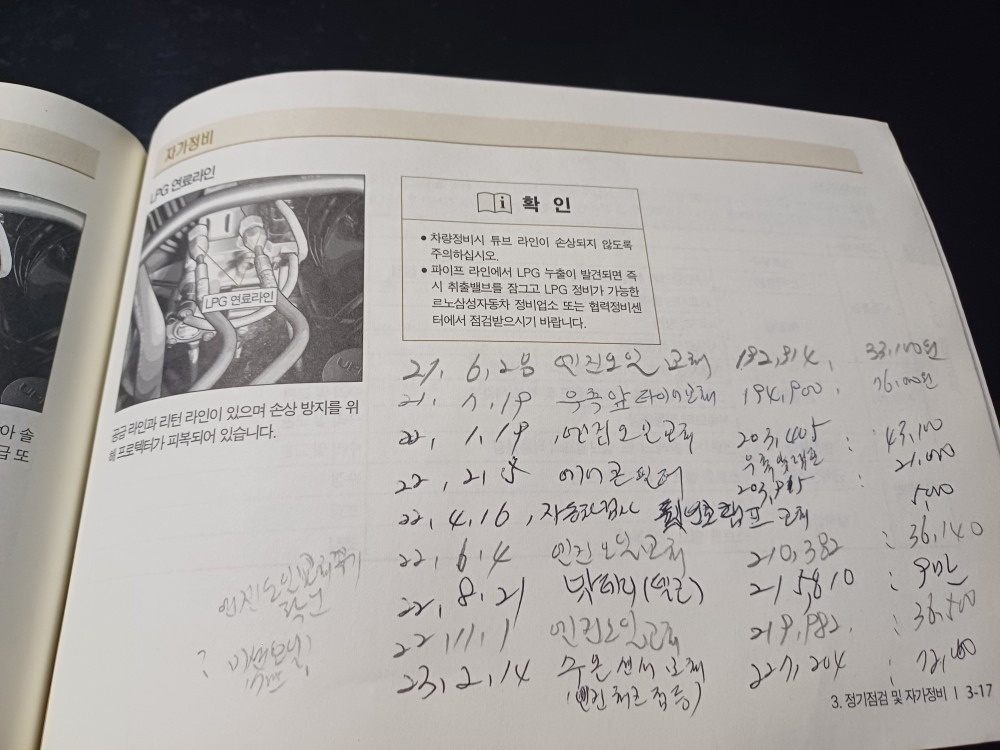 자가정비
LPG 연료라인
LPG 연료라인
공급 라인과 리턴 라인이 있으며 손상 방지를 위
해 프로텍터가 피복되어 있습니다.
확 인
● 차량정비시 튜브 라인이 손상되지 않도록
주의하십시오.
● 파이프 라인에서 LPG 누출이 발견되면 즉
시 취출밸브를 잠그고 LPG 정비가 가능한
르노삼성자동차 정비업소 또는 협력정비센
터에서 점검받으시기 바랍니다.
아 솔
급 또
21, 6, 엔진오일 교체 192,814, 33,100원
21, 7, 19 우측앞 타이어교체 194,900, 76,000원
22, 1, 19, 엔진오일교체 203,405 : 43,100
22, 2, 5 에어콘필터 203, : 21,000
22, 4, 16, 자동차검사 번호램프 교체
22, 6, 4 엔진오일교체 210,382 : 36,140
22, 8, 21 밧데리(델코) 215,810 : 9만
22, 11, 1 엔진오일교체 219,982, : 36,500
23, 2, 14 수온센서 교체 227,204 : 72,000
(엔진체크점등)
3. 정기점검 및 자가정비 | 3-17